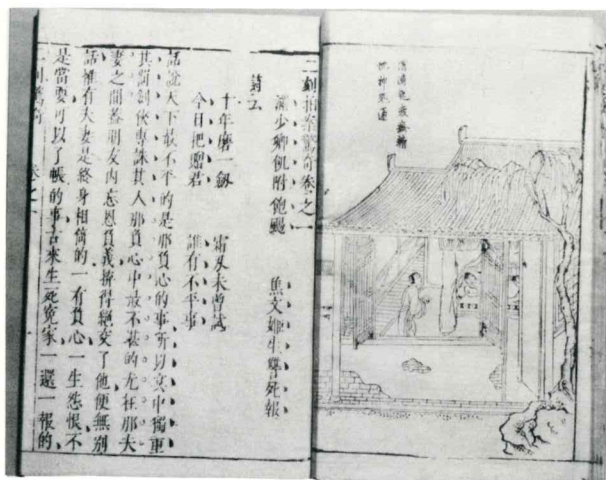 二刻拍案驚奇卷之一
滿少卿飢附飽颺 焦文姬生讐死報
詩云
十年磨一劔 霜刄未曾試
今日把贈君 誰有不平事
話說天下最不平的是那負心的事所以冥中獨重
其罰劍俠專誅其人那負心中最不堪的尤在那夫
妻之間蓋朋友內忘恩負義拚得絕交了他便無別
話惟有夫妻是終身相倚的一有負心一生怨恨不
是當耍可以了帳的事古來生死寃家一還一報的
二刻驚奇 卷之一